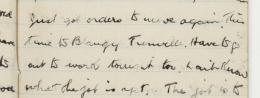 Just got orders to move again. This
time to Blangy Tronville. Have to go
out to work tonight too. Don't know
what the job is yet. The job is to